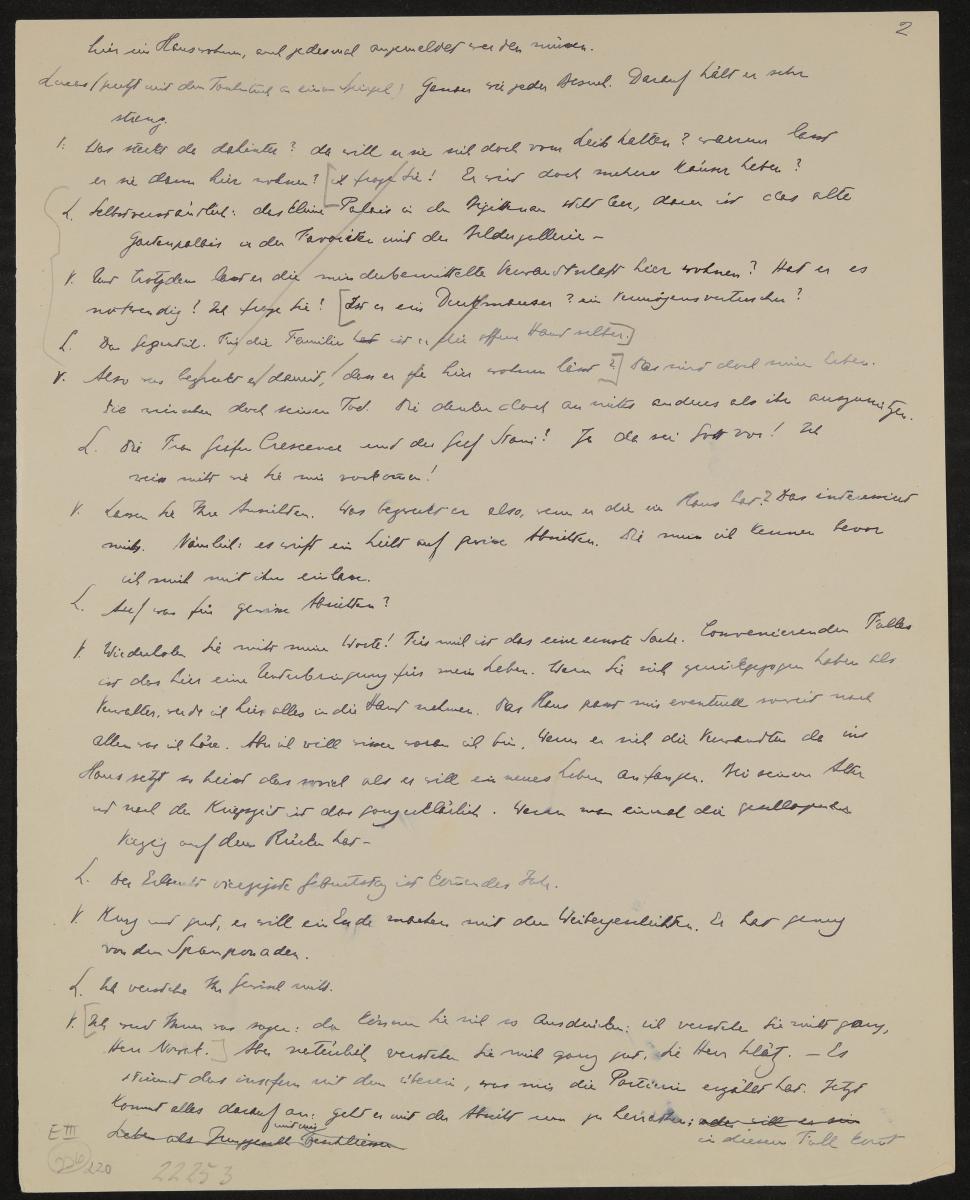 2
hier im Haus wohnen, und jedesmal angemeldet werden müssen.
Lukas (putzt mit dem Tuch einen Spiegel) Genau wie jeder Besuch. Darauf hält er sehr
streng.
V. Was steckt da dahinter? da will er sie sich doch vom Leib halten? warum lasst
er sie dann hier wohnen? [ich frage Sie! Er wird doch mehrere Häuser haben?
L. Selbstverständlich: das kleine Palais in der steht leer, dann ist das alte
Gartenpalais in der Favoriten mit der Bildergallerie –
V. Und trotzdem lasst er die minderbemittelte Verwandtschaft hier wohnen? Hat er es
notwendig? Ich frage Sie! [Ist er ein Duckmauser? ein Vermögensvertuscher?
L. Das Gegenteil. Für die Familie hat ist er die offene Hand selber.]
V. Also was bezweckt er damit, dass er sie hier wohnen lässt?] Das sind doch seine Erben.
Die wünschen doch seinen Tod. Die denken doch an nichts anderes als ihn auszunützen.
L. Die Frau Gräfin Crescence und der Graf Stani! Ja da sei Gott vor! Ich
weiss nicht wie Sie mir vorkomen!
V. Lassen Sie Ihre Ansichten. Was bezweckt er also, wenn er die im Haus hat? Das interessiert
mich. Nämlich: es wirft ein Licht auf gewisse Absichten. Die muss ich kennen bevor
ich mich mit ihm einlasse.
L. Auf was für gewisse Absichten?
V. Wiederholen Sie nicht meine Worte! Für mich ist das eine ernste Sache. Convenierenden Falles
ist das hier eine Unterbringung für mein Leben. Wenn Sie sich zurückgezogen haben als
Verwalter, werde ich hier alles in die Hand nehmen. Das Haus passt mir eventuell soweit nach
allem was ich höre. Aber ich will wissen woran ich bin. Wenn er sich die Verwandten da ins
Haus setzt so heisst das soviel als er will ein neues Leben anfangen. Bei seinem Alter
und nach der Kriegszeit ist das ganz erklärlich. Wenn man einmal die geschlagenen
Vierzig auf dem Rücken hat –
L. Der Erlaucht vierzigste Geburtstag ist kommendes Jahr.
V. Kurz und gut, er will ein Ende machen mit den Weibergeschichten. Er hat genug
von den Spanponaden.
L. Ich verstehe Ihr Gewäsch nicht.
V. [Ich werd Ihnen was sagen: da können Sie sich so ausdrücken: ich verstehe Sie nicht ganz,
Herr Novak.] Aber natürlich verstehen Sie mich ganz gut, Sie Herr Schätz. – Es
stimmt das insofern mit dem überein, was mir die Portierin erzählt hat. Jetzt
kommt alles darauf an: geht er mit der Absicht um zu heiraten; oder will er sein
Leben als Junggeselle beschliessen
in diesem Fall
E III
220
22253